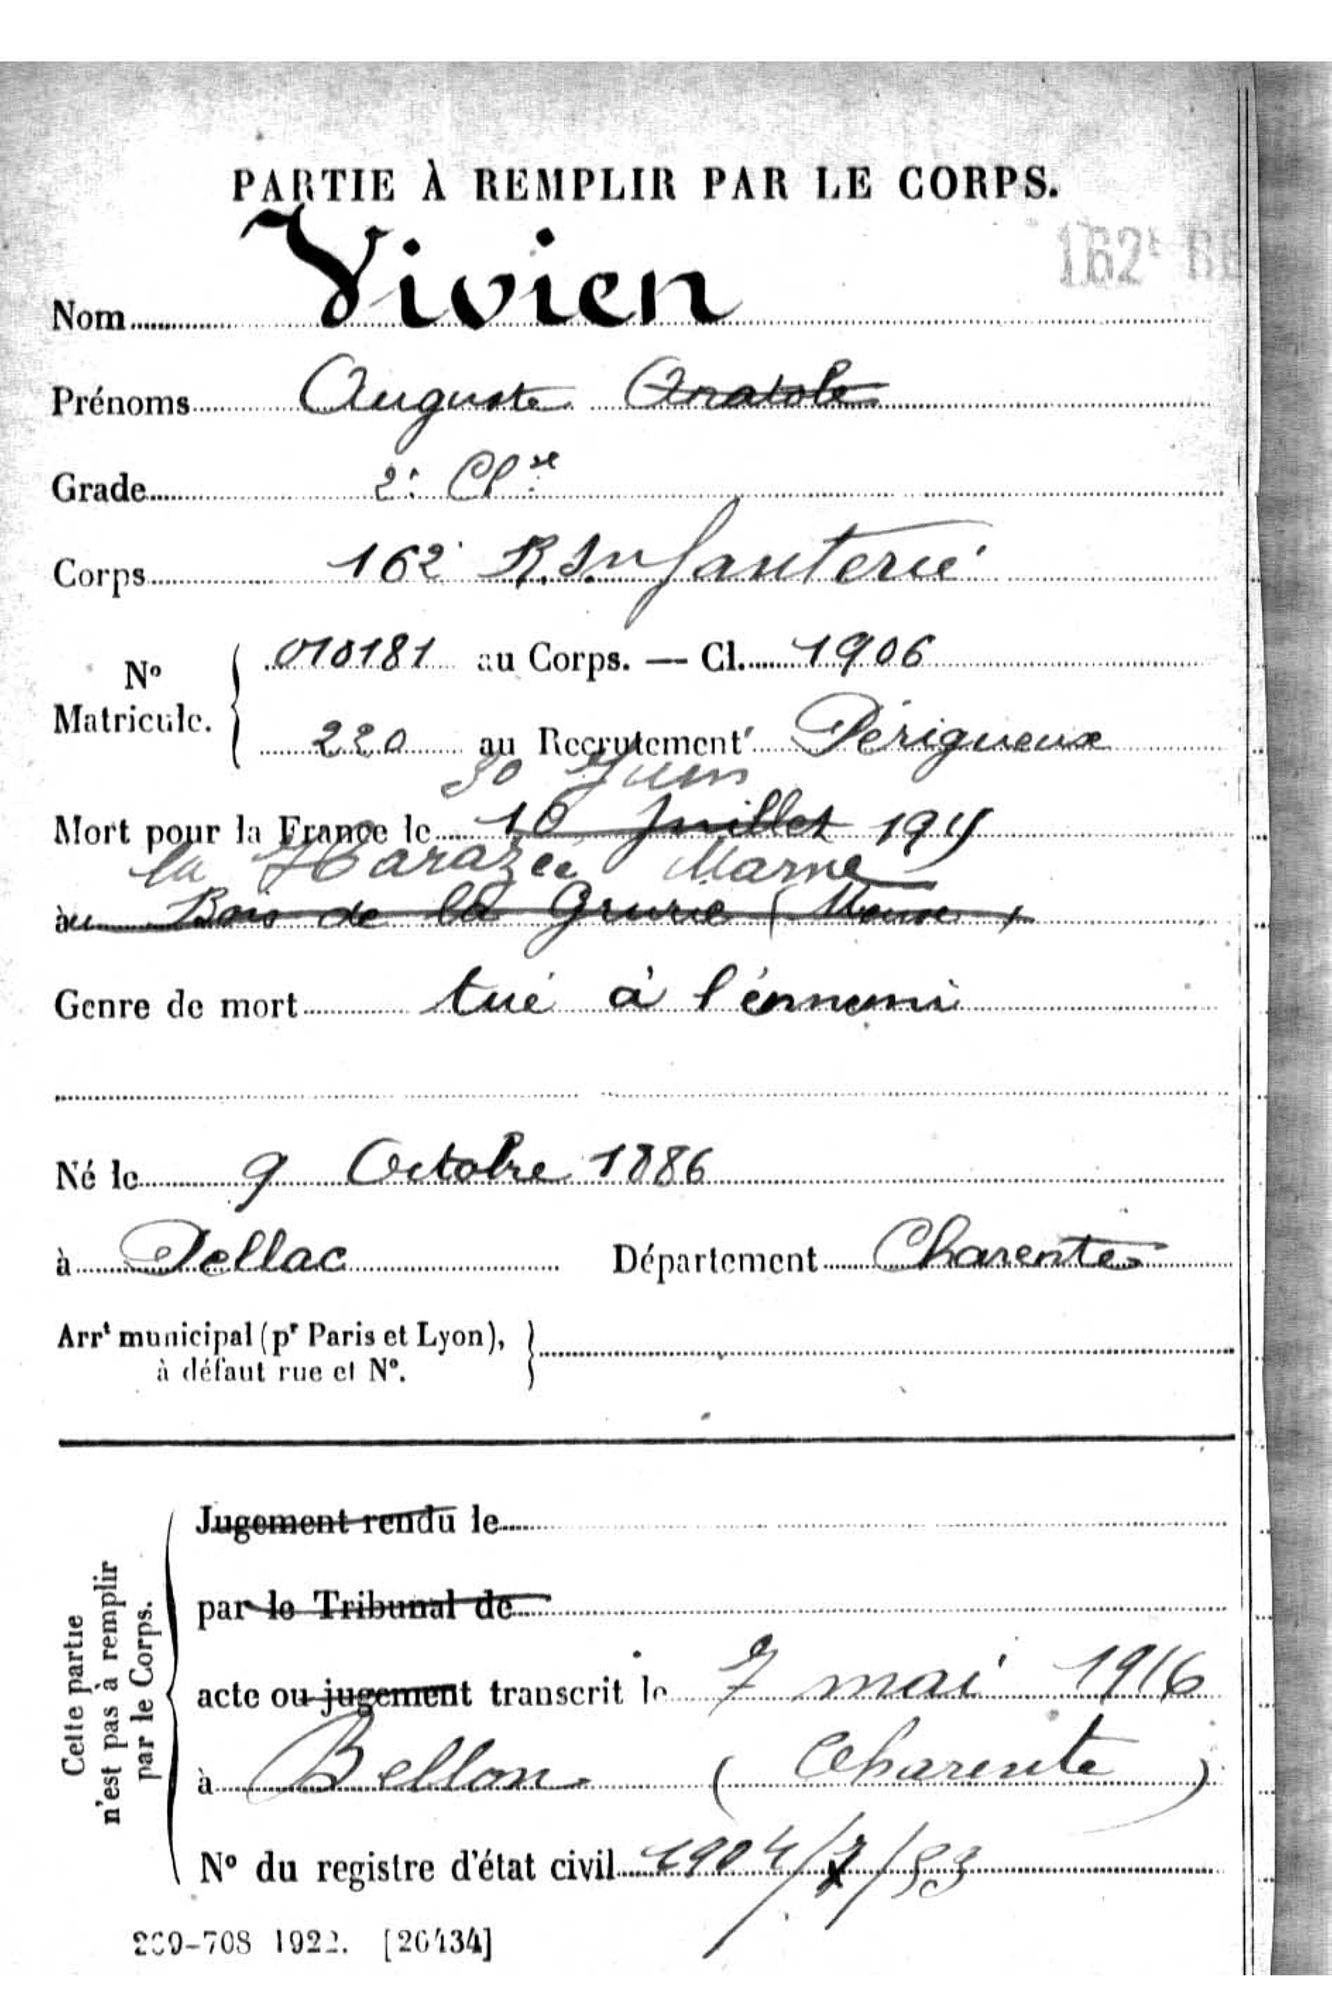 PARTIE À REMPLIR PAR LE CORPS.
162e RE
Nom Vivien
Prénoms Auguste Anatole
Grade 2e Cl se
Corps 162e R. Infanterie
No Matricule. 010181 au Corps. — Cl. 1906
220 au Recrutement Périgueux
30 Juin
Mort pour la France le 16 Juillet 1915
la Harazée Marne
au Bois de la Grurie (Meuse)
Genre de mort tué à l'énnemi
Né le 9 Octobre 1886
à Pellac Département Charente
Arrt municipal (pr Paris et Lyon),
à défaut rue et No.
Cette partie
n'est pas à remplir
par le Corps.
Jugement rendu le
par le Tribunal de
acte ou jugement transcrit le 7 mai 1916
à Bellon (Charente)
No du registre d'état civil 1904/7/93
1922. [26434]